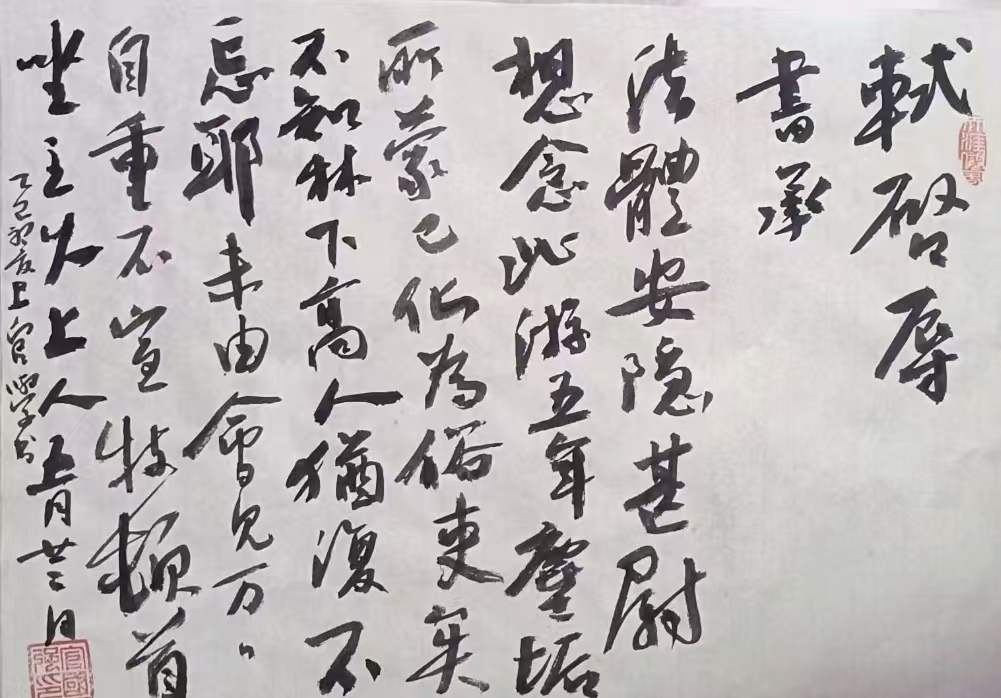 軾啓辱
書承
法體安隱甚尉
想念北游五年塵垢
所蒙已化為俗吏矣
不知林下高人猶復不
忘耶未由會見万〻
自重不宣軾頓首
坐主久上人五月廿二日
乙巳初夏上官學書